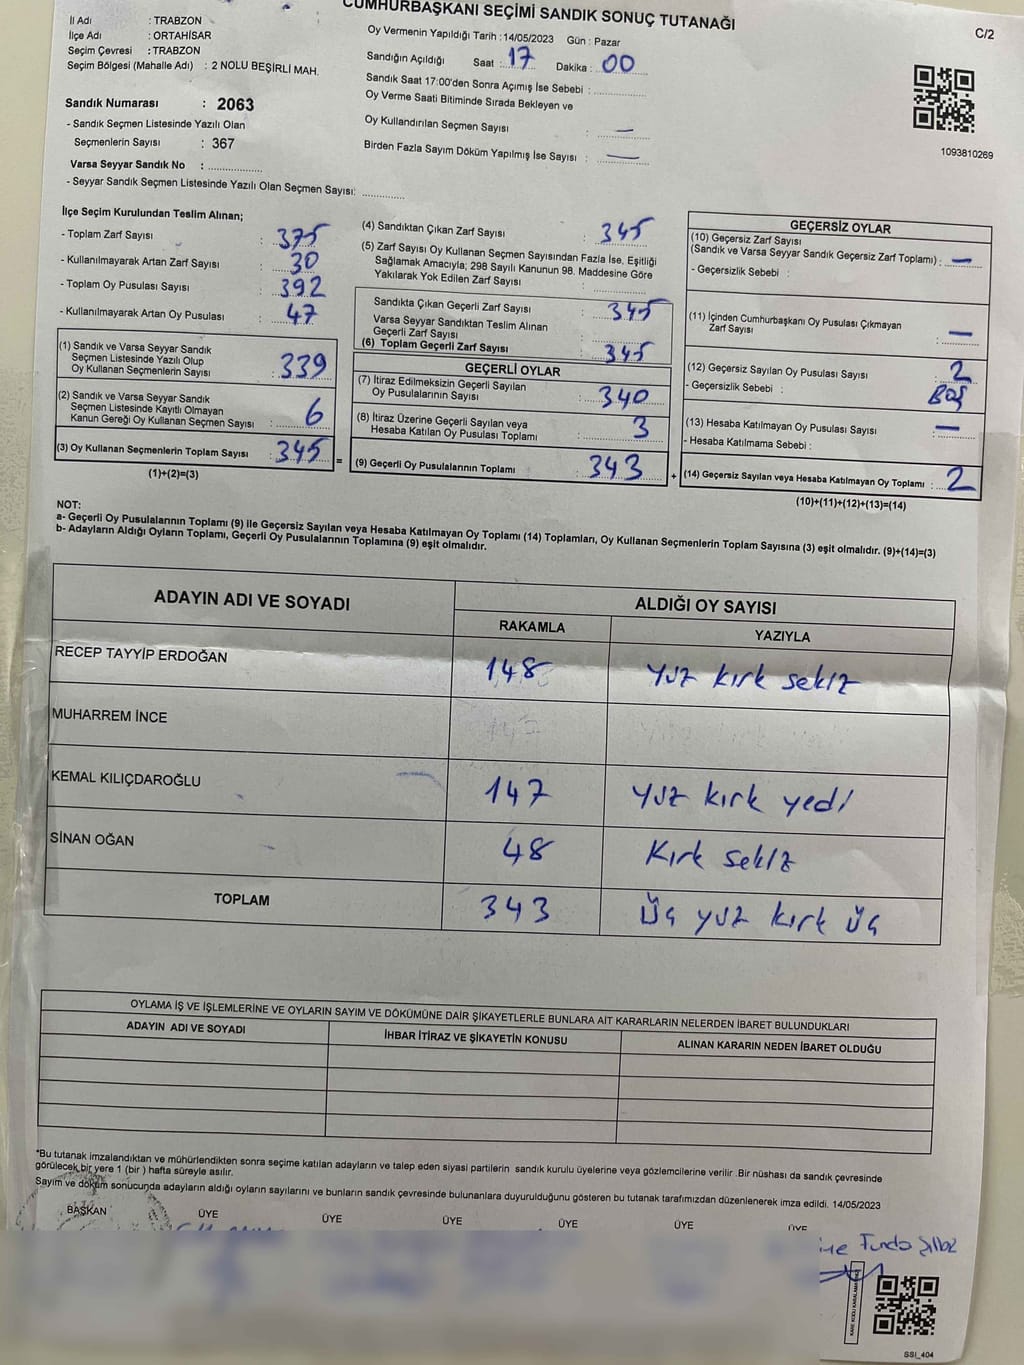 CUMHURBAŞKANI SEÇİMİ SANDIK SONUÇ TUTANAĞI
C/2
İl Adı : TRABZON
İlçe Adı : ORTAHİSAR
Seçim Çevresi : TRABZON
Seçim Bölgesi (Mahalle Adı) : 2 NOLU BEŞİRLİ MAH.
Sandık Numarası : 2063
- Sandık Seçmen Listesinde Yazılı Olan
Seçmenlerin Sayısı : 367
Varsa Seyyar Sandık No :
- Seyyar Sandık Seçmen Listesinde Yazılı Olan Seçmen Sayısı:
Oy Vermenin Yapıldığı Tarih : 14/05/2023 Gün : Pazar
Sandığın Açıldığı Saat : 17 Dakika : 00
Sandık Saat 17:00'den Sonra Açımış İse Sebebi :
Oy Verme Saati Bitiminde Sırada Bekleyen ve
Oy Kullandırılan Seçmen Sayısı : —
Birden Fazla Sayım Döküm Yapılmış İse Sayısı : —
1093810269
İlçe Seçim Kurulundan Teslim Alınan;
- Toplam Zarf Sayısı : 375
- Kullanılmayarak Artan Zarf Sayısı : 30
- Toplam Oy Pusulası Sayısı : 392
- Kullanılmayarak Artan Oy Pusulası : 47
(1) Sandık ve Varsa Seyyar Sandık
Seçmen Listesinde Yazılı Olup
Oy Kullanan Seçmenlerin Sayısı : 339
(2) Sandık ve Varsa Seyyar Sandık
Seçmen Listesinde Kayıtlı Olmayan
Kanun Gereği Oy Kullanan Seçmen Sayısı : 6
(3) Oy Kullanan Seçmenlerin Toplam Sayısı : 345
(1)+(2)=(3)
=
(4) Sandıktan Çıkan Zarf Sayısı : 345
(5) Zarf Sayısı Oy Kullanan Seçmen Sayısından Fazla İse, Eşitliği
Sağlamak Amacıyla; 298 Sayılı Kanunun 98. Maddesine Göre
Yakılarak Yok Edilen Zarf Sayısı :
Sandıkta Çıkan Geçerli Zarf Sayısı : 345
Varsa Seyyar Sandıktan Teslim Alınan
Geçerli Zarf Sayısı :
(6) Toplam Geçerli Zarf Sayısı : 345
GEÇERLİ OYLAR
(7) İtiraz Edilmeksizin Geçerli Sayılan
Oy Pusulalarının Sayısı : 340
(8) İtiraz Üzerine Geçerli Sayılan veya
Hesaba Katılan Oy Pusulası Toplamı : 3
(9) Geçerli Oy Pusulalarının Toplamı : 343
+
GEÇERSİZ OYLAR
(10) Geçersiz Zarf Sayısı
(Sandık ve Varsa Seyyar Sandık Geçersiz Zarf Toplamı) : —
- Geçersizlik Sebebi :
(11) İçinden Cumhurbaşkanı Oy Pusulası Çıkmayan
Zarf Sayısı : —
(12) Geçersiz Sayılan Oy Pusulası Sayısı : 2
- Geçersizlik Sebebi : BOŞ
(13) Hesaba Katılmayan Oy Pusulası Sayısı : —
- Hesaba Katılmama Sebebi :
(14) Geçersiz Sayılan veya Hesaba Katılmayan Oy Toplamı : 2
(10)+(11)+(12)+(13)=(14)
NOT:
a- Geçerli Oy Pusulalarının Toplamı (9) ile Geçersiz Sayılan veya Hesaba Katılmayan Oy Toplamı (14) Toplamları, Oy Kullanan Seçmenlerin Toplam Sayısına (3) eşit olmalıdır. (9)+(14)=(3)
b- Adayların Aldığı Oyların Toplamı, Geçerli Oy Pusulalarının Toplamına (9) eşit olmalıdır.
ADAYIN ADI VE SOYADI ALDIĞI OY SAYISI
RAKAMLA YAZIYLA
RECEP TAYYİP ERDOĞAN 148 yuz kırk sekiz
MUHARREM İNCE
KEMAL KILIÇDAROĞLU 147 yuz kırk yedi
SİNAN OĞAN 48 Kırk sekiz
TOPLAM 343 üç yuz kırk üç
OYLAMA İŞ VE İŞLEMLERİNE VE OYLARIN SAYIM VE DÖKÜMÜNE DAİR ŞİKAYETLERLE BUNLARA AİT KARARLARIN NELERDEN İBARET BULUNDUKLARI
ADAYIN ADI VE SOYADI İHBAR İTİRAZ VE ŞİKAYETİN KONUSU ALINAN KARARIN NEDEN İBARET OLDUĞU
*Bu tutanak imzalandıktan ve mühürlendikten sonra seçime katılan adayların ve talep eden siyasi partilerin sandık kurulu üyelerine veya gözlemcilerine verilir .Bir nüshası da sandık çevresinde
görülecek bir yere 1 (bir ) hafta süreyle asılır.
Sayım ve döküm sonucunda adayların aldığı oyların sayılarını ve bunların sandık çevresinde bulunanlara duyurulduğunu gösteren bu tutanak tarafımızdan düzenlenerek imza edildi. 14/05/2023
BAŞKAN ÜYE ÜYE ÜYE ÜYE ÜYE ÜYE
SSI_404